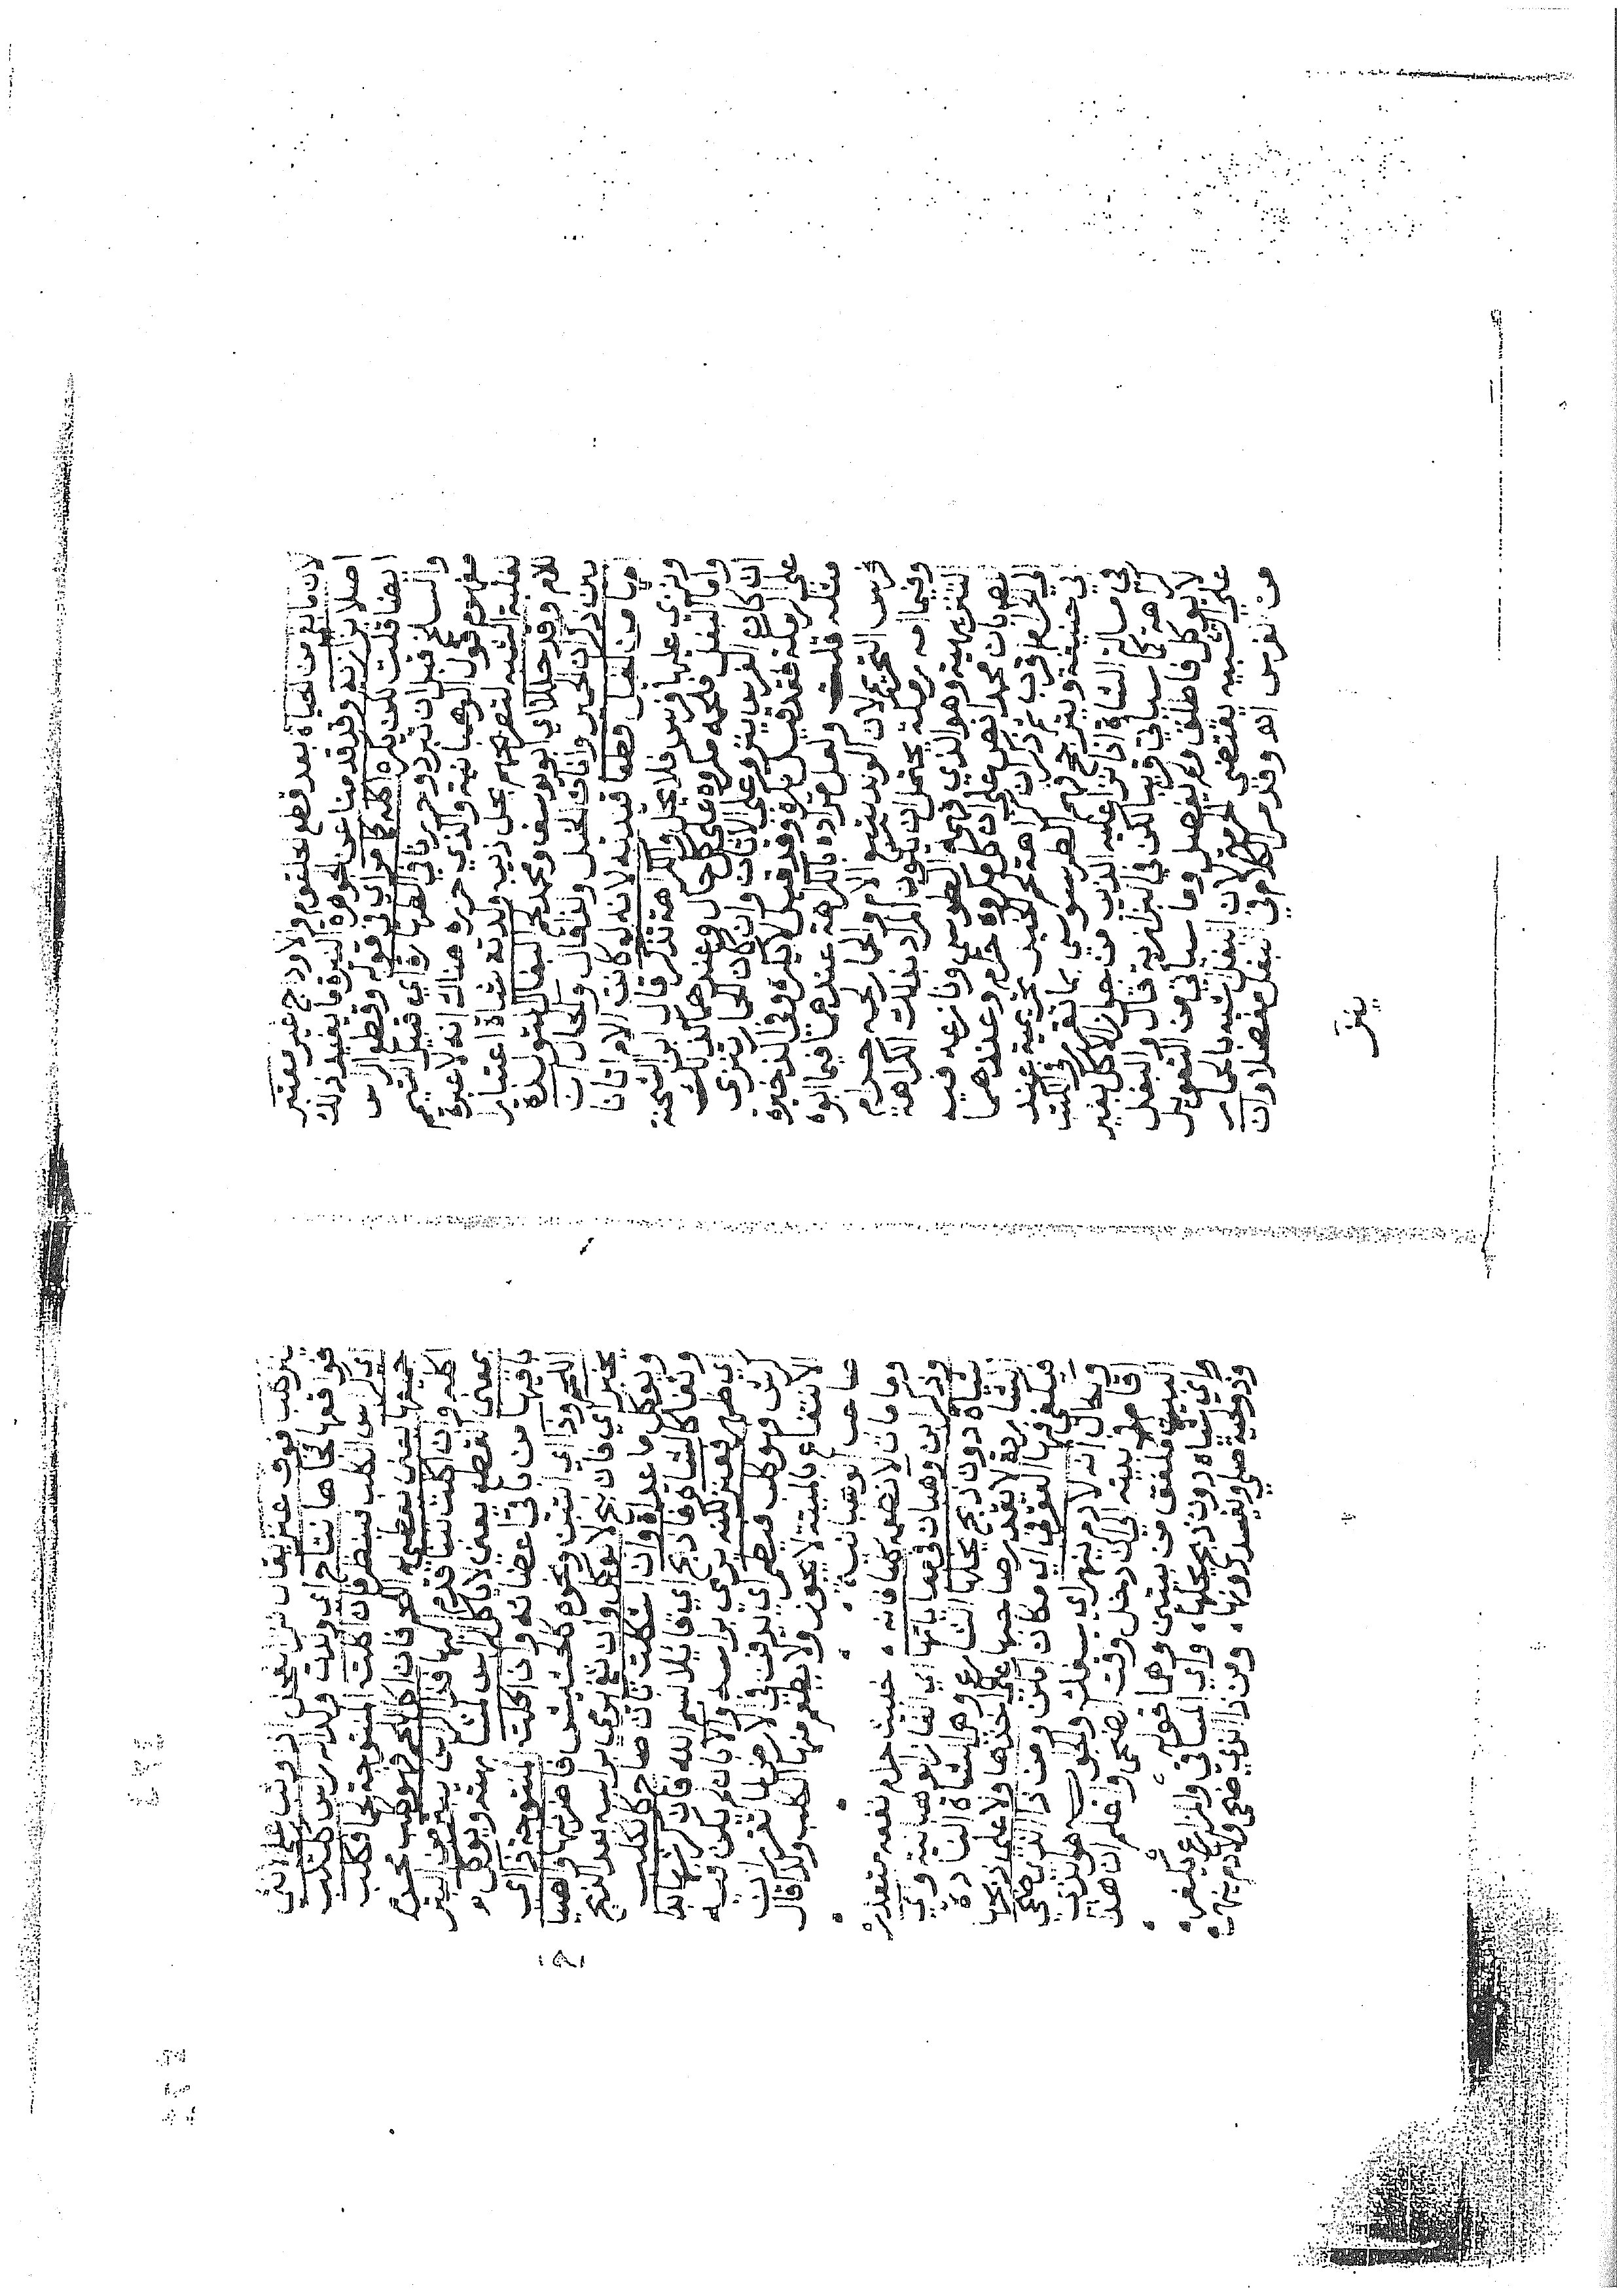 لان ما بقي من الحياة بعد قطع الحلقوم والاوداج غير معتبر
اصلا بزازية وقد قدمنا عن الجوهرة النيرة ما يفيد ذلك
ايضا قلت لكن يكره اكله كما مر اي في قوله وقطع الراس
والسلخ قبل ان تبرد وحررنا في الطهارة اي قبيل التيمم
مفهوم قول الوهبانية والذي حرره هناك انه لا عبرة
لغلبة الشبه لتصريحهم بحل ذيب ولدته شاة اعتبار
للام وقد حللا اي ابو يوسف ومحمد لحم البغال المتولدة
بين ذكران الحمير واناث الخيل والحال ان
من الخيل قطعا قيد به لانه لو كانت الام اتانا
ونزى عليها فرس فلا يحل والكراهة تذكر قال ابن الشحنة
واما البغل فلحمه مكروه على كل حال وعندهما كذلك
ان كان الفرس ينزو على الاتان وان كان الحمار ينزى
على الرمكة فقد قيل يكره وقد قيل لا يكره وفي الذخيرة
مثله قلت ولعل مراده بالكراهة عندهما فيما ابوه
فرس التحريم لان الولد يتبع الام والحمار لحمه حرام
وفيما امه رمكة يحتمل ان يكون المراد بذلك الكراهة
التنزيهية وهو الذي فهمه الطرسوسي ونازعه فيه
بان محمدا نص على ان كل مكروه حرام وعندهما
الى الحرام اقرب ثم ذكر ان كراهة لحم الخيل تحريمية عند
ابي حنيفة ويترجح فهم الطرسوسي بما تقرر في الكتب
في مسالة الشاة اذا نزا عليها الذيب من حل الاكل بغير
كراهة كما سياتي قريبا لكن في البزازية قال والبغل
لا يوكل فاطلق ولم يفصل وما سياتي من التعويل
على الشبه يقتضي الحرمة لان البغل اشبه بالحمار
من الفرس اه وقد مر الكلام في البغل مفصلا وان
ينز
ينز كلب فوق عنز يقال نزا الفحل اذا وثب على الانثى
فوافقها فجاها نتاج اي ولدت ولدا له راس ككلب
اي كراس الكلب فينظر فان اكلت المنتوجة لحما فكلب
جميعها يعني يعطى له اللحم فان اكل اللحم فهو كلب محرم
اكله وان اكلت تبنا قدم اليها فذا الراس يبتر من البتر
بمعنى القطع يعني لا ياكل الراس لمشابهته ويوكل
باقيها من باقي اعضائه وان اكلت المنتوجة ذا اي
اللحم وذا اي التبن ونحوه كالحشيش فاضربنها والصياح
يخبر اي فان نبح لا يوكل وان ثغى يرمي براسه بعد الذبح
ويوكل ما عداه وان اشكلت بان صاح كالكلب
وثغا كالشاة فاذبح اي قائلا بسم الله فان كرشها بدا
اي ظهر فعنز لكنه يرمي براسه والا بان لم يكن فيه
كرش فهو كلب فيطمر اي يدفن في الارض لما تقرر ان
الانتفاع بالميتة لا يجوز ولا يطعم منها الكلب ولذا قال
صاحب الوهبانية
وما مات لا تطعمه كلبا فانه ، خبيث حرام نفعه متعذر
وذكر ابن وهبان في معاياتها اي الغاز الوهبانية واي
شياه دون ذبح يحلها الشارع وهل الشاة النادة
الشاردة لا يقدر صاحبها على اخذها ولا على ذبحها
فيكفي فيها العقر في اي مكان امكن ومن ذا الذي ضحى
ويقال انه لا دم ينهر اي يسفك والجواب هو الذي
اقام في بيته الى ان دخل وقت الضحى واعلم ان هذا
البيت ملفق من بيتين وهما قوله
واي شياه دون ذبح يحلها ، واي المساقي والمزارع يكفر
وذو لحية صلى وتفسد كونها ، ومن ذا الذي ضحى ولا دم ينهر
١٥٨